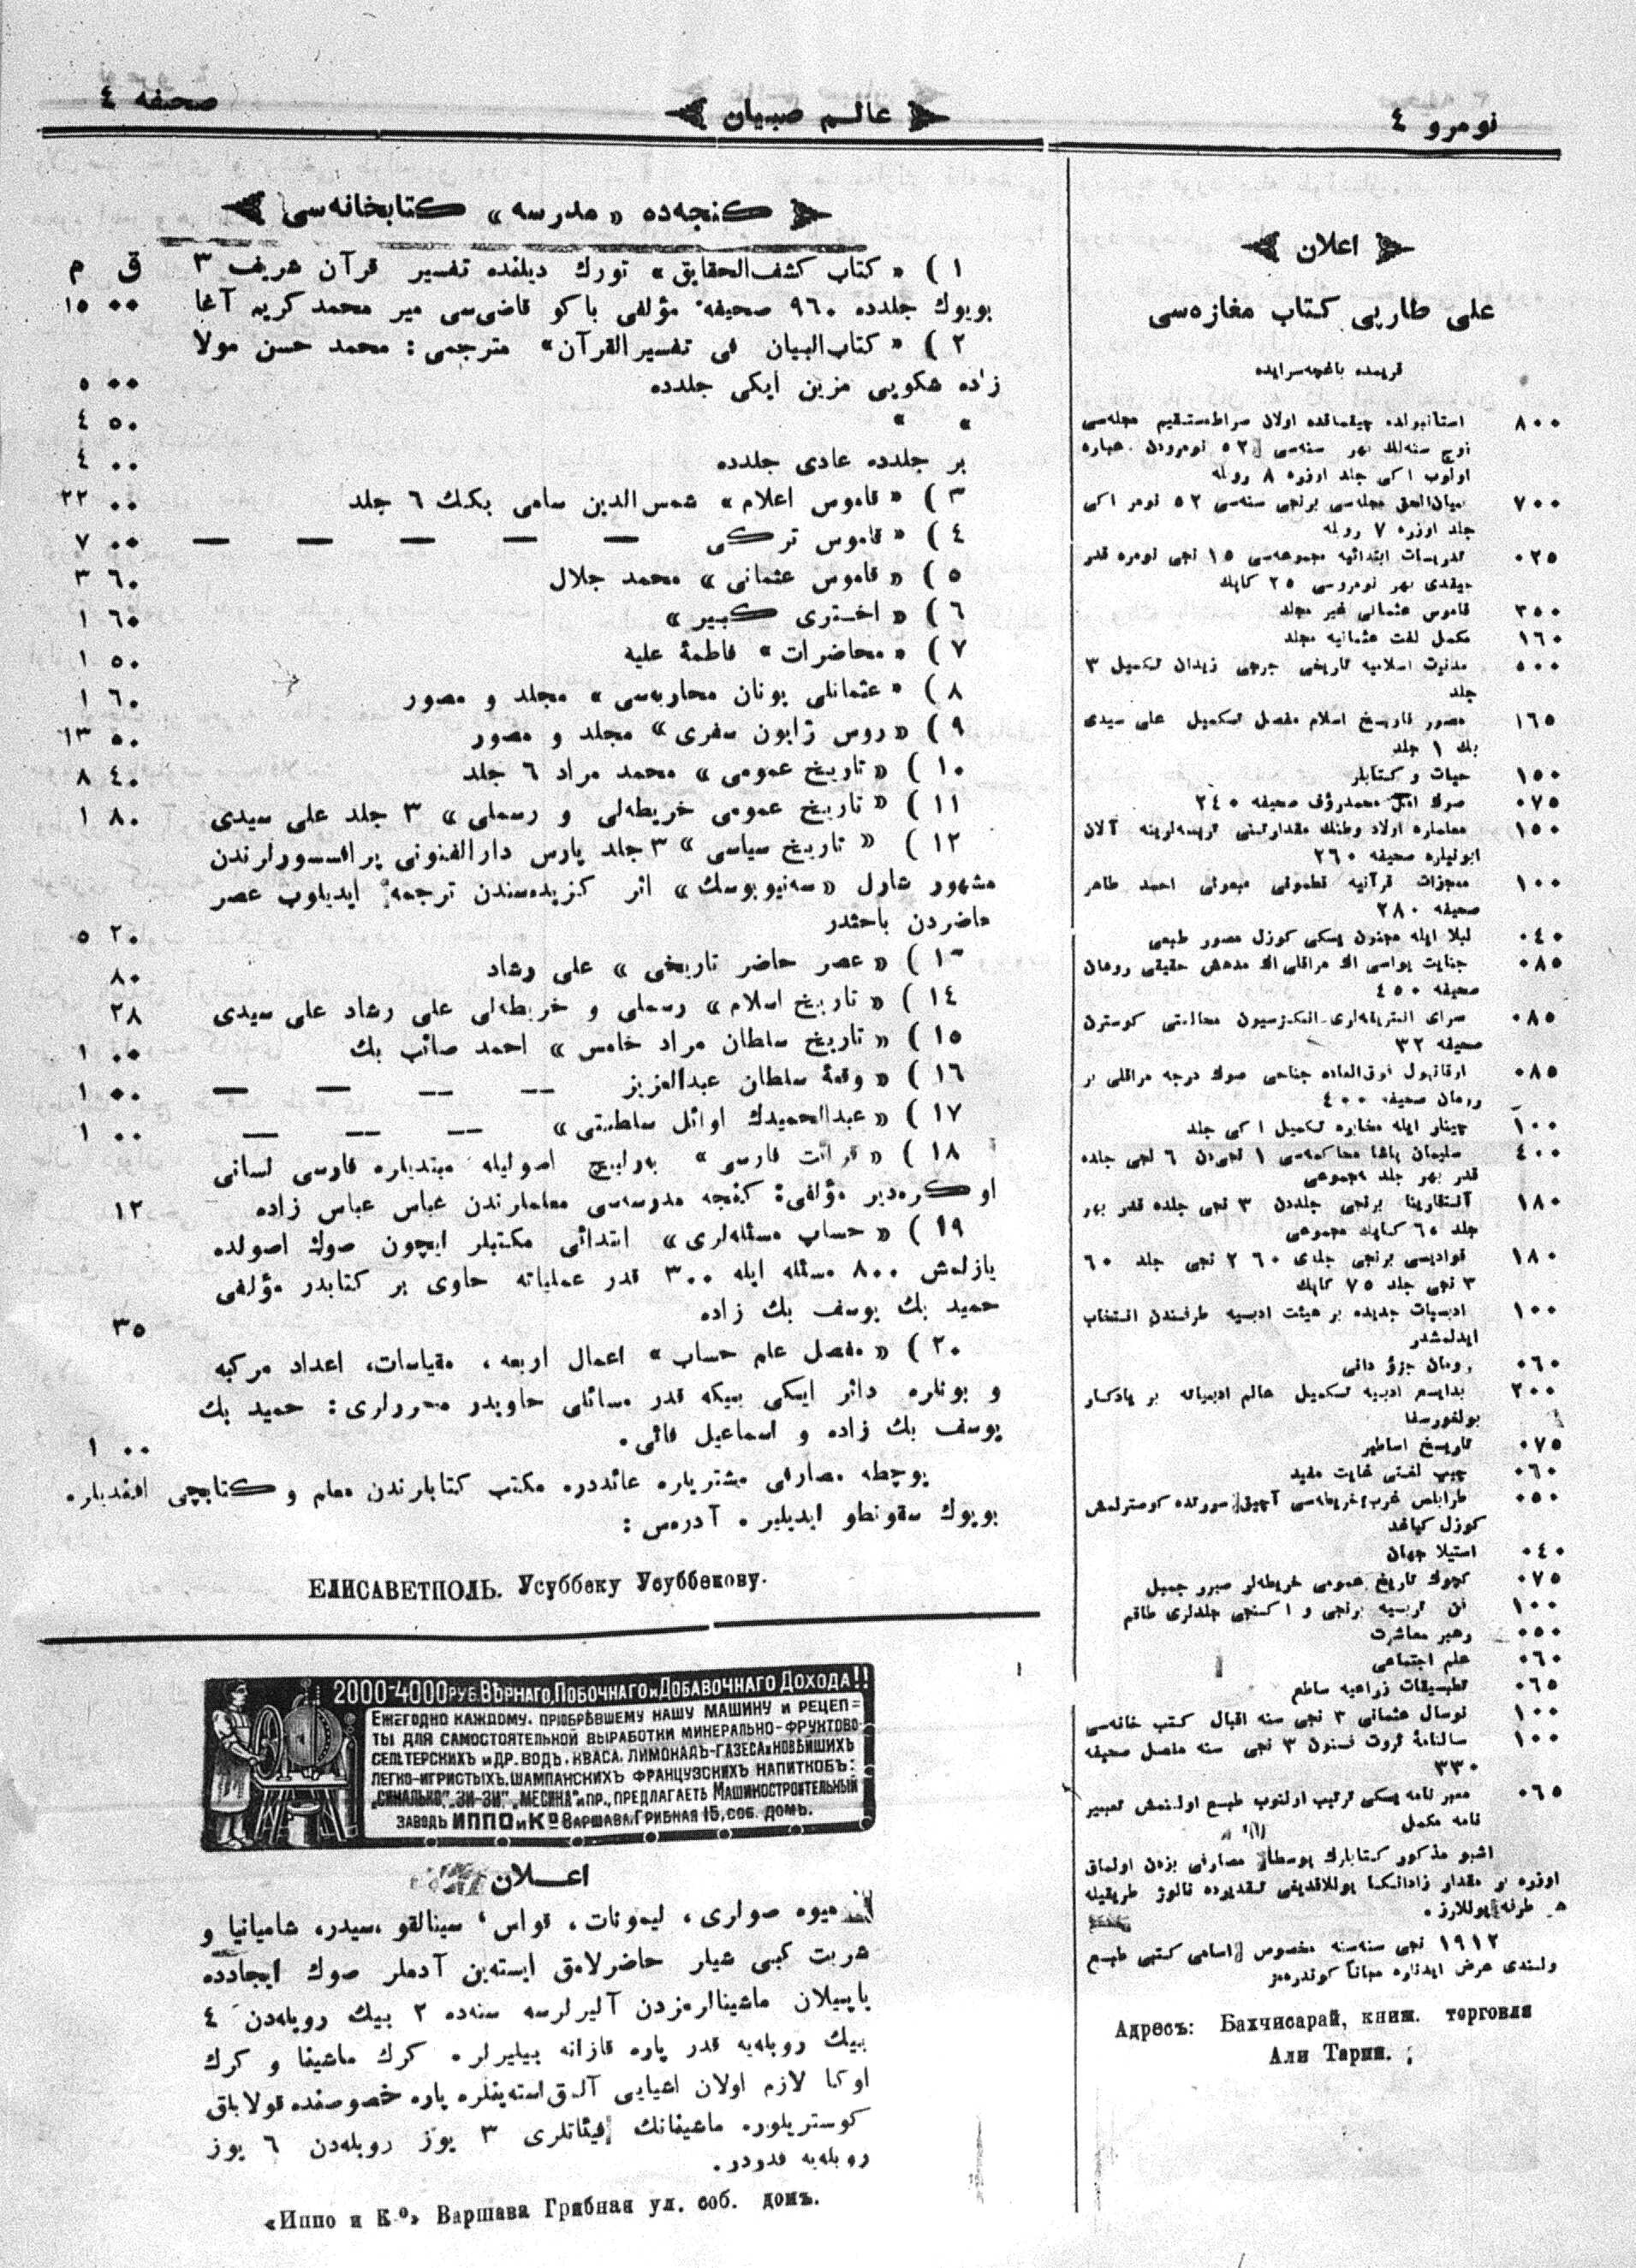 نومرو ٤
عالم صبیان
صحیفه ٤
اعلان
علی طارپی کتاب مغازه‌سی
قریمده باغچه‌سرایده
استانبولده چیقماقده اولان صراط‌مستقیم مجله‌سی ٨٠٠
اوچ سنه‌لك بهر سنه‌سی ٥٢ نومرودن عباره
اولوب ا کی جلد اوزره ٨ روبله
بیان‌الحق مجله‌سی برنجی سنه‌سی ٥٢ نومر اکی ٧٠٠
جلد اوزره ٧ روبله
تدریسات ابتدائیه مجموعه‌سی ١٥ نجی نومره قدر ٠٢٥
چیقدی بهر نومروسی ٢٥ کاپك
قاموس عثمانی غیر مجلد ٣٥٠
مکمل لغت عثمانیه مجلد ١٦٠
مدنیت اسلامیه تاریخی جرجی زیدان تکمیل ٣ ٥٠٠
جلد
مصور تاریخ اسلام مفصل تکمیل علی سیدی ١٦٥
بك ١ جلد
حیات و کتابلر ١٥٠
صوك امل محمدرؤف صحیفه ٢٤٠ ٠٧٥
معلماره اولاد وطنك مقدارتنی تربیه‌لرینه آلان ١٥٠
ابونیلره صحیفه ٢٦٠
معجزات قرآنیه قطمونی مبعوثی احمد طاهر ١٠٠
صحیفه ٢٨٠
لیلا ایله مجنون یسکی کوزل مصور طبعی ٠٤٠
جنایت یواسی اك مراقلی اك مدهش حقیقی رومان ٠٨٥
صحیفه ٤٥٠
سرای انتریقه‌لری انکیزسیون محالتنی کوسترن ٠٨٥
صحیفه ٣٢
ارقانپول فوق‌العاده جناحی صوك درجه مراقلی بر ٠٨٥
رومان صحیفه ٤٠٠
چینار ایله مخابره تکمیل ا کی جلد ١٠٠
سلیمان پاشا محاکمه‌سی ١ نجی‌دن ٦ نجی جلده ٤٠٠
قدر بهر جلد مجموعی
آنتقارینا برنجی جلددن ٣ نجی جلده قدر بهر ١٨٠
جلد ٦٠ کاپك مجموعی
قوادیسی برنجی جلدی ٦٠ ٢ نجی جلد ٦٠ ١٨٠
٣ نجی جلد ٧٥ کاپك
ادبیات جدیده بر هیئت ادبیه طرفندن انتخاب ١٠٠
ایدلمشدر
رومان جزؤ دانی ٠٦٠
بدایع ادبیه تکمیل عالم ادبیاته بر یادکار ٢٠٠
بولفورسفا
تاریخ اساطیر ٠٧٥
جیب لغتی غایت مفید ٠٦٠
طرابلس غرب خریطه‌سی آچیق صورتده کوسترلمش ٠٥٠
کوزل کیاغد
استیلا جهان ٠٤٠
کچوك تاریخ عمومی خریطه‌لر صبرر جمیل ٠٧٥
فن تربیه برنجی و ا کنجی جلدلری طاقم ١٠٠
رهبر معاشرت ٠٥٠
علم اجتماعی ٠٦٠
تطبیقات زراعیه ساطع ٠٦٥
نوسال عثمانی ٣ نجی سنه اقبال کتب خانه‌سی ١٠٠
سالنامهٔ ثروت فنون ٣ نجی سنه مفصل صحیفه ١٠٠
٣٣٠
معبر نامه یسکی ترتیب اولنوب طبع اولنمش تعبیر ٠٦٥
نامه مکمل
اشبو مذکور کتابلرك پوسطه مصارفی بزدن اولماق
اوزره بر مقدار زادانکا یوللاقدیغی تقدیرده نالوژ طریقیله
هر طرفه یوللارز.
١٩١٢ نجی سنه‌سنه مخصوص اسامی کتبی طبع
ولندی عرض ایدنلره مجاناً کوندرەمز
Адресъ: Бахчисарай, книж. торговля
Али Тарпи.
کنجه‌ده «مدرسه» کتابخانه‌سی
١ ) «کتاب کشف‌الحقایق» تورك دیلنده تفسیر قرآن شریف ٣ ق م
بویوك جلدده ٩٦٠ صحیفه مؤلفی باکو قاضی‌سی میر محمد کریم آغا ٠٠ ١٥
٢ ) «کتاب‌البیان فی تفسیرالقرآن» مترجمی: محمد حسن مولا
زاده شکویی مزین ایکی جلدده ٠٠ ٥
» » ٥٠ ٤
بر جلدده عادی جلدده ٠٠ ٤
٣ ) «قاموس اعلام» شمس‌الدین سامی بکك ٦ جلد ٠٠ ٢٢
٤ ) «قاموس ترکی — — — — — ٠٠ ٧
٥ ) «قاموس عثمانی» محمد جلال ٦٠ ٣
٦ ) «اختری کبیر» ٦٠ ١
٧ ) «محاضرات» فاطمهٔ علیه ٥٠ ١
٨ ) «عثمانلی یونان محاربه‌سی» مجلد و مصور ٦٠ ١
٩ ) «روس ژاپون سفری» مجلد و مصور ٥٠ ١٣
١٠ ) «تاریخ عمومی» محمد مراد ٦ جلد ٤٠ ٨
١١ ) «تاریخ عمومی خریطه‌لی و رسملی» ٣ جلد علی سیدی ٨٠ ١
١٢ ) «تاریخ سیاسی» ٣ جلد پارس دارالفنونی پرافسسورلرندن
مشهور شارل «سه‌نیوبوسك» اثر کزیده‌سندن ترجمه ایدیلوب عصر
حاضردن باحثدر ٢٠ ٥
١٣ ) «عصر حاضر تاریخی» علی رشاد ٨٠
١٤ ) «تاریخ اسلام» رسملی و خریطه‌لی علی رشاد علی سیدی ٢٨
١٥ ) «تاریخ سلطان مراد خامس» احمد صائب بك ٠٠ ١
١٦ ) «وقعهٔ سلطان عبدالعزیز — — — — ٠٠ ١
١٧ ) «عبدالحمیدك اوائل سلطنتی» — — — ٠٠ ١
١٨ ) «قرائت فارسی» به‌رلیچ اصولیله مبتدیلره فارسی لسانی
اوکره‌دیر مؤلفی: کنجه مدرسه‌سی معلملرندن عباس عباس زاده ١٢
١٩ ) «حساب مسئله‌لری» ابتدائی مکتبلر ایچون صوك اصولده
یازلمش ٨٠٠ مسئله ایله ٣٠٠ قدر عملیاته حاوی بر کتابدر مؤلفی
حمید بك یوسف بك زاده ٣٥
٢٠ ) «مفصل علم حساب» اعمال اربعه، مقیاسات، اعداد مرکبه
و بونلره دائر ایکی بیکه قدر مسائلی حاویدر محررلری: حمید بك
یوسف بك زاده و اسماعیل فائی. ٠٠ ١
پوچطه مصارفی مشتریلره عائددر، مکتب کتابلرندن معلم و کتابچی افندیلره.
بویوك سقونطو ایدیلیر، آدرس:
ЕЛИСАВЕТПОЛЬ. Усуббеку Усуббекову.
2000-4000 РУБ. ВѢРНАГО, ПОБОЧНАГО и ДОБАВОЧНАГО ДОХОДА!!
ЕЖЕГОДНО КАЖДОМУ, ПРІОБРѢВШЕМУ НАШУ МАШИНУ И РЕЦЕП=
ТЫ ДЛЯ САМОСТОЯТЕЛЬНОЙ ВЫРАБОТКИ МИНЕРАЛЬНО-ФРУКТОВО-
СЕЛЬТЕРСКИХЪ и ДР. ВОДЪ, КВАСА, ЛИМОНАДЪ-ГАЗЕСА и НОВѢЙШИХЪ
ЛЕГКО-ИГРИСТЫХЪ, ШАМПАНСКИХЪ ФРАНЦУЗСКИХЪ НАПИТКОВЪ:
„СИНАЛЬКО", „ЗИ-ЗИ", „МЕСИНА" и ПР., ПРЕДЛАГАЕТЪ МАШИНОСТРОИТЕЛЬНЫЙ
ЗАВОДЪ ИППО и Кº ВАРШАВА, ГРИБНАЯ 15, СОБ. ДОМЪ.
اعلان
میوه صولری، لیمونات، قواس، سینالقو، سیدر، شامپانیا و
شربت کبی شیلر حاضرلامق ایسته‌ین آدملر صوك ایجادده
یاپیلان ماشینالرمزدن آلیرلرسه سنه‌ده ٢ بیك روبله‌دن ٤
بیك روبله‌یه قدر پاره قازانه بیلیرلر. کرك ماشینا و کرك
اوکا لازم اولان اشیایی آلمق استه‌ینلره پاره خصوصنده قولایلق
کوستریلور، ماشینانك فیئاتلری ٣ یوز روبله‌دن ٦ یوز
روبله‌یه قدردر.
«Иппо и Кº» Варшава Грибная ул. соб. домъ.